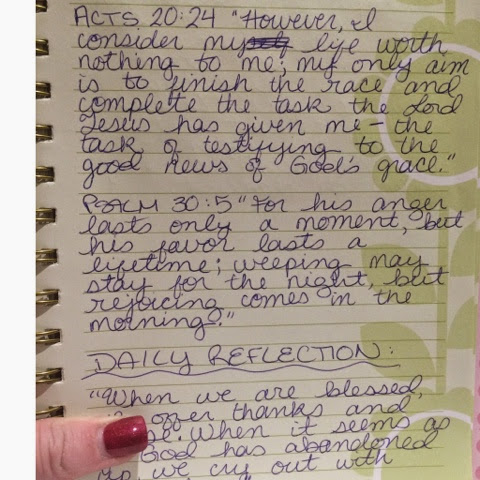 ACTS 20:24 "However, I
consider my life worth
nothing to me; my only aim
is to finish the race and
complete the task the Lord
Jesus has given me - the
task of testifying to the
good news of God's grace."
PSALM 30:5 "For his anger
lasts only a moment, but
his favor lasts a
lifetime; weeping may
stay for the night, but
rejoicing comes in the
morning."
DAILY REFLECTION:
"When we are blessed,
offer thanks and
When it seems as
God has abandoned
we cry out with